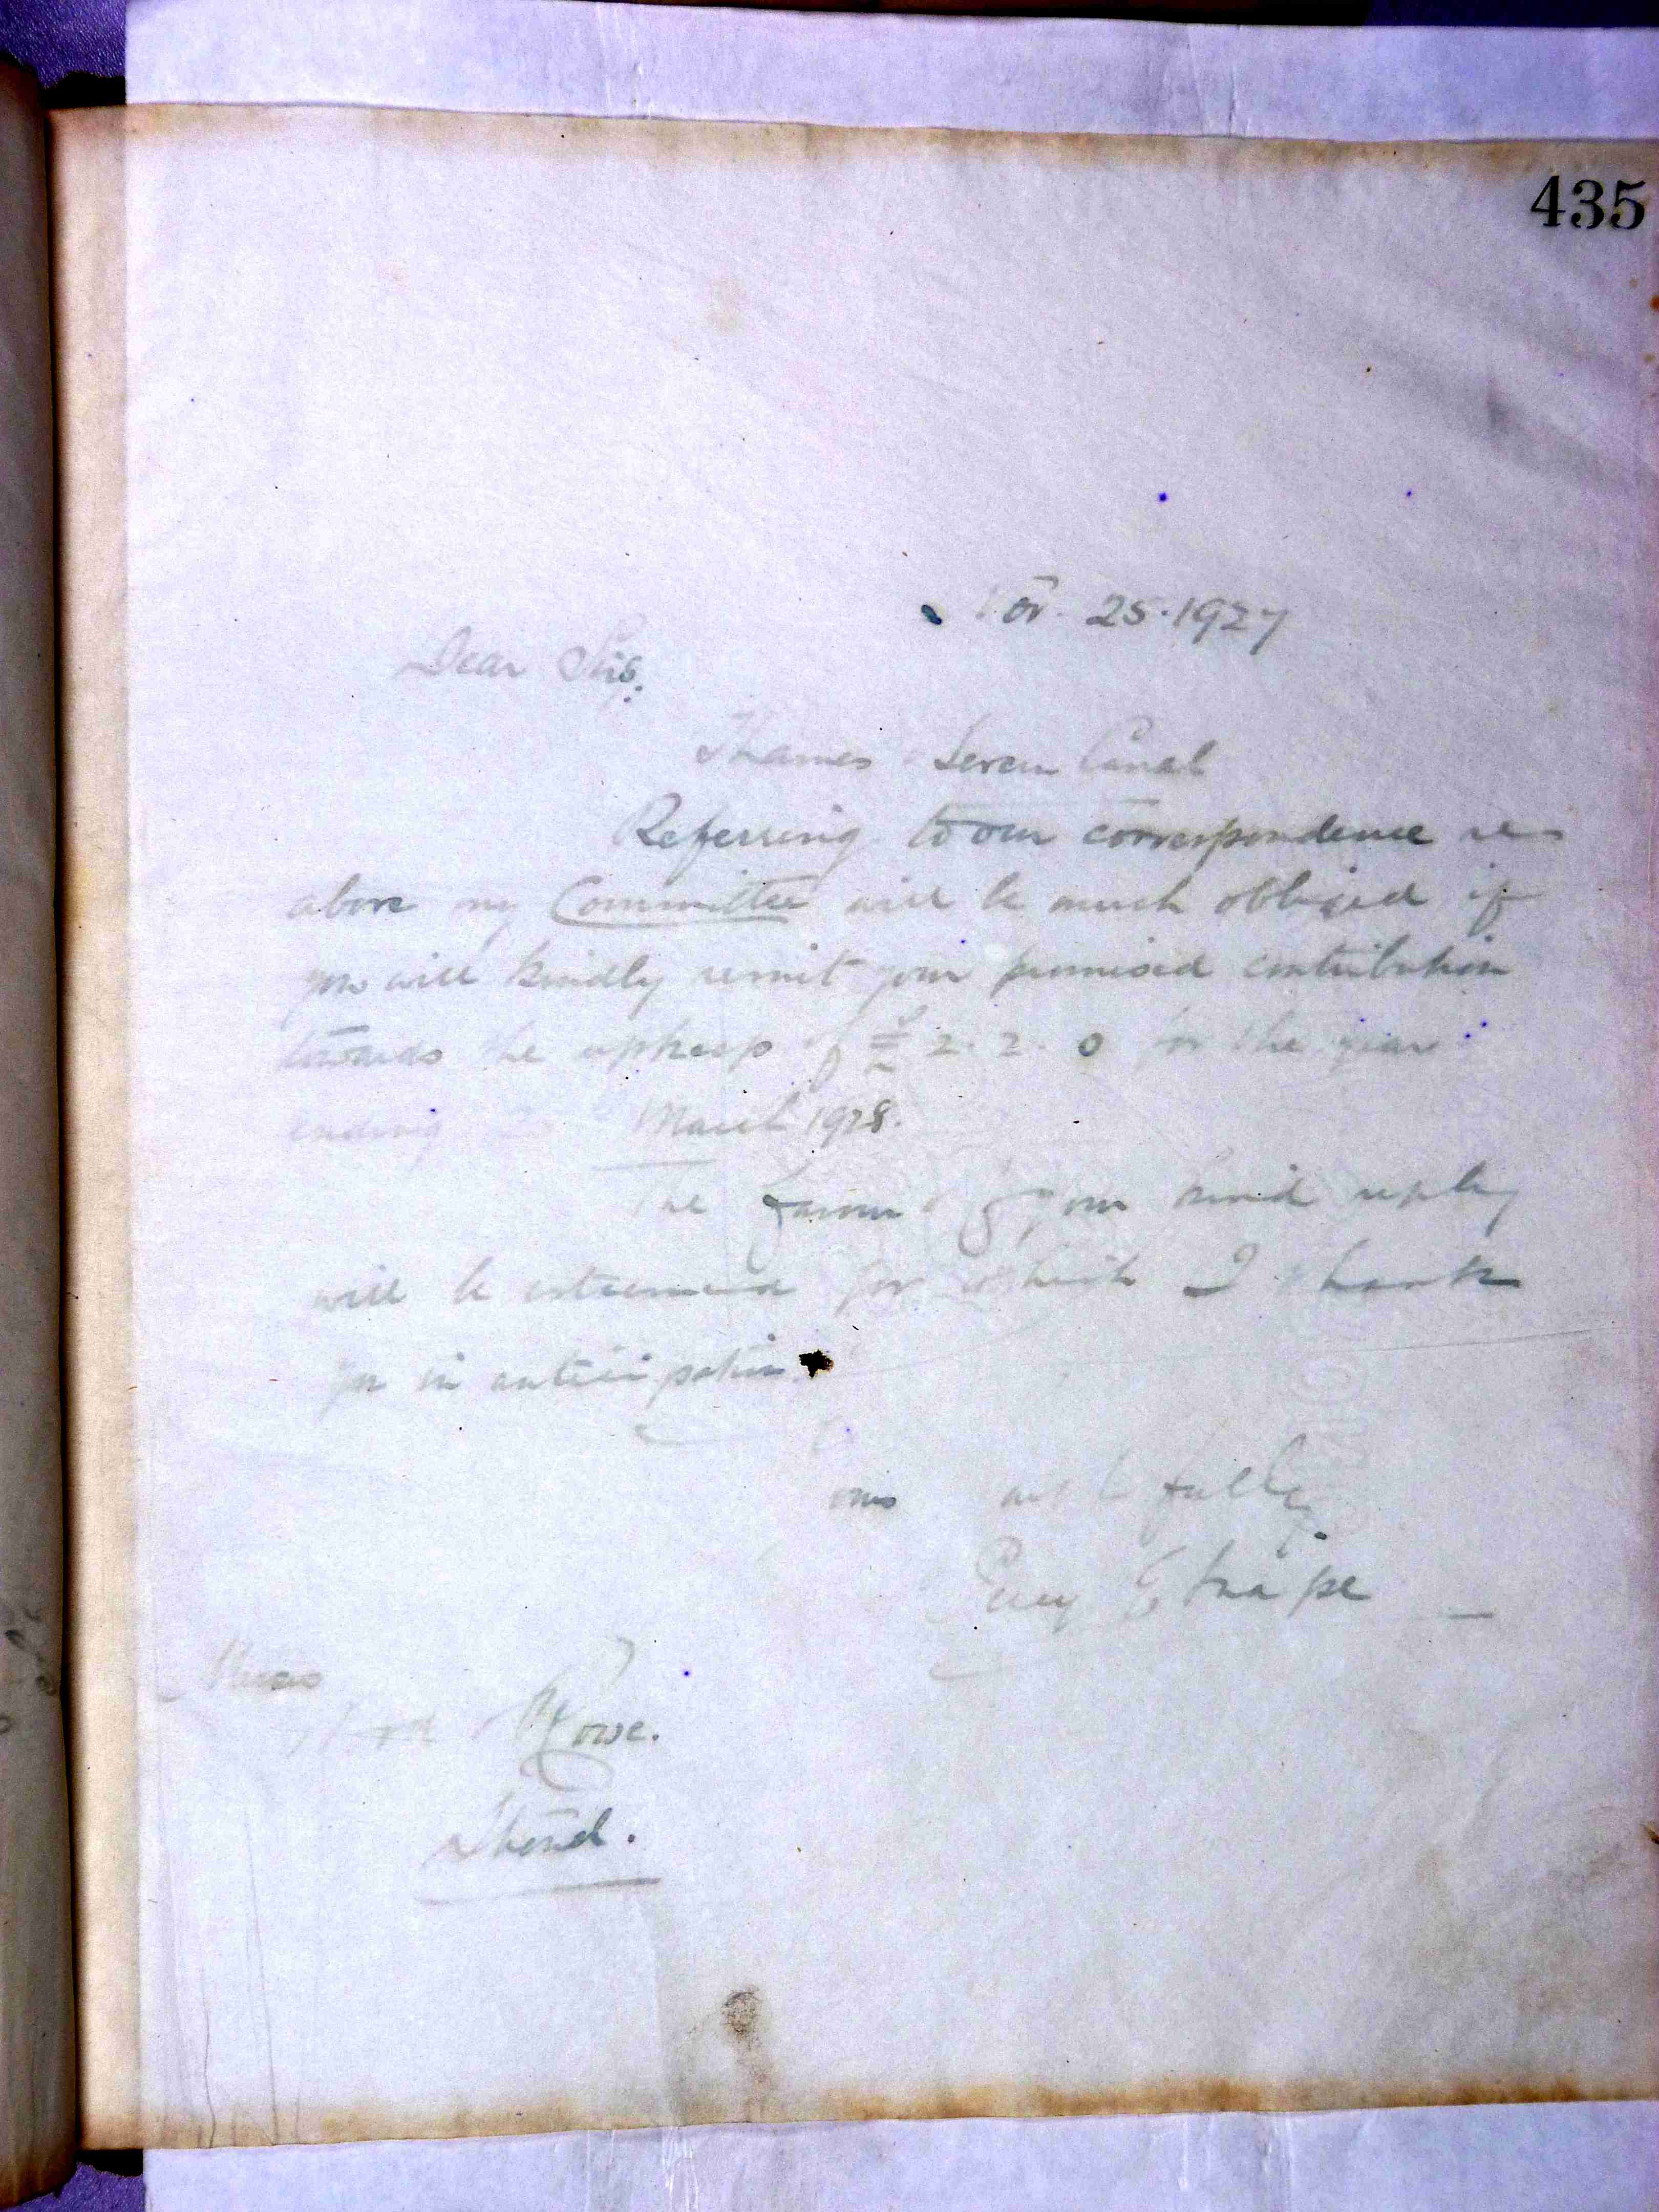 435
Nov. 25. 1927
Dear Sirs,
Thames Severn Canal
Referring to our correspondence re
above my Committee will be much obliged if
you will kindly remit your promised contribution
towards the upkeep of £ 2. 2. 0 for the year
ending March 1928.
The favour of your kind reply
will be esteemed for which I thank
you in anticipation.
Yours faithfully
Messrs
Rowe.
Stroud.